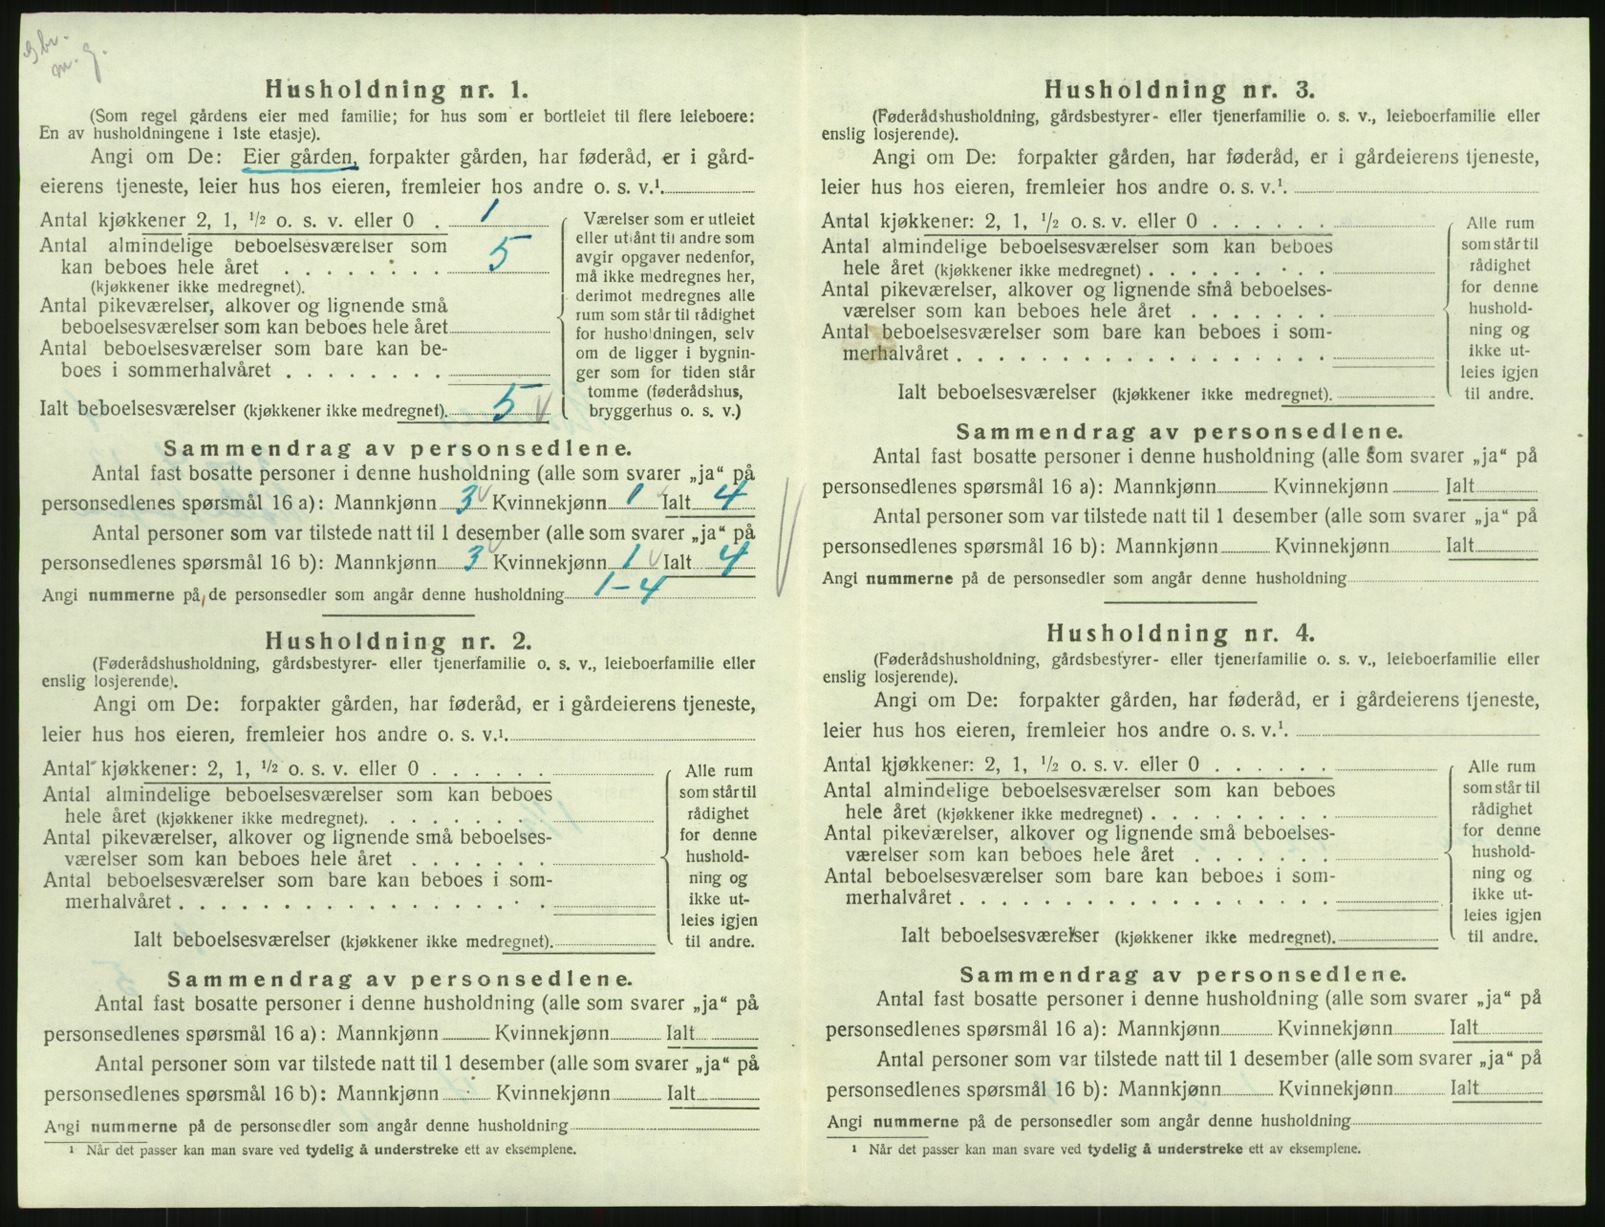 Husholdning nr. 1.
(Som regel gårdens eier med familie; for hus som er bortleiet til flere leieboere:
En av husholdningene i 1ste etasje).
Angi om De: Eier gården, forpakter gården, har føderåd, er i gård-
eierens tjeneste, leier hus hos eieren, fremleier hos andre o. s. v.¹
Antal kjøkkener 2, 1, ½ o. s. v. eller 0 . 1
Antal almindelige beboelsesværelser som
kan beboes hele året . . . . . . . 5
(kjøkkener ikke medregnet).
Antal pikeværelser, alkover og lignende små
beboelsesværelser som kan beboes hele året
Antal beboelsesværelser som bare kan be-
boes i sommerhalvåret . . . . . . . .
Ialt beboelsesværelser (kjøkkener ikke medregnet). 5
Værelser som er utleiet
eller utlånt til andre som
avgir opgaver nedenfor,
må ikke medregnes her,
derimot medregnes alle
rum som står til rådighet
for husholdningen, selv
om de ligger i bygnin-
ger som for tiden står
tomme (føderådshus,
bryggerhus o. s. v.)
Sammendrag av personsedlene.
Antal fast bosatte personer i denne husholdning (alle som svarer „ja“ på
personsedlenes spørsmål 16 a): Mannkjønn 3 Kvinnekjønn 1 Ialt 4
Antal personer som var tilstede natt til 1 desember (alle som svarer „ja“ på
personsedlenes spørsmål 16 b): Mannkjønn 3 Kvinnekjønn 1 Ialt 4
Angi nummerne på de personsedler som angår denne husholdning 1-4
Husholdning nr. 2.
(Føderådshusholdning, gårdsbestyrer- eller tjenerfamilie o. s. v., leieboerfamilie eller
enslig losjerende).
Angi om De: forpakter gården, har føderåd, er i gårdeierens tjeneste,
leier hus hos eieren, fremleier hos andre o. s. v.¹
Antal kjøkkener: 2, 1, ½ o. s. v. eller 0 . . . . . .
Antal almindelige beboelsesværelser som kan beboes
hele året (kjøkkener ikke medregnet). . . . . . . .
Antal pikeværelser, alkover og lignende små beboelses-
værelser som kan beboes hele året . . . . . . .
Antal beboelsesværelser som bare kan beboes i som-
merhalvåret . . . . . . . . . . . . . . . . . .
Ialt beboelsesværelser (kjøkkener ikke medregnet).
Alle rum
som står til
rådighet
for denne
hushold-
ning og
ikke ut-
leies igjen
til andre.
Sammendrag av personsedlene.
Antal fast bosatte personer i denne husholdning (alle som svarer „ja“ på
personsedlenes spørsmål 16 a): Mannkjønn Kvinnekjønn Ialt
Antal personer som var tilstede natt til 1 desember (alle som svarer „ja“ på
personsedlenes spørsmål 16 b): Mannkjønn Kvinnekjønn Ialt
Angi nummerne på de personsedler som angår denne husholdning
¹ Når det passer kan man svare ved tydelig å understreke ett av eksemplene.
Husholdning nr. 3.
(Føderådshusholdning, gårdsbestyrer- eller tjenerfamilie o. s. v., leieboerfamilie eller
enslig losjerende).
Angi om De: forpakter gården, har føderåd, er i gårdeierens tjeneste,
leier hus hos eieren, fremleier hos andre o. s. v.¹
Antal kjøkkener: 2, 1, ½ o. s. v. eller 0 . . . . . .
Antal almindelige beboelsesværelser som kan beboes
hele året (kjøkkener ikke medregnet) . . . . . . . .
Antal pikeværelser, alkover og lignende små beboelses-
værelser som kan beboes hele året . . . . . . .
Antal beboelsesværelser som bare kan beboes i som-
merhalvåret . . . . . . . . . . . . . . . . . .
Ialt beboelsesværelser (kjøkkener ikke medregnet).
Alle rum
som står til
rådighet
for denne
hushold-
ning og
ikke ut-
leies igjen
til andre.
Sammendrag av personsedlene.
Antal fast bosatte personer i denne husholdning (alle som svarer „ja“ på
personsedlenes spørsmål 16 a): Mannkjønn Kvinnekjønn Ialt
Antal personer som var tilstede natt til 1 desember (alle som svarer „ja“ på
personsedlenes spørsmål 16 b): Mannkjønn Kvinnekjønn Ialt
Angi nummerne på de personsedler som angår denne husholdning
Husholdning nr. 4.
(Føderådshusholdning, gårdsbestyrer- eller tjenerfamilie o. s. v., leieboerfamilie eller
enslig losjerende).
Angi om De: forpakter gården, har føderåd, er i gårdeierens tjeneste,
leier hus hos eieren, fremleier hos andre o. s. v.¹
Antal kjøkkener: 2, 1, ½ o. s. v. eller 0 . . . . . .
Antal almindelige beboelsesværelser som kan beboes
hele året (kjøkkener ikke medregnet) . . . . . . . .
Antal pikeværelser, alkover og lignende små beboelses-
værelser som kan beboes hele året . . . . . . .
Antal beboelsesværelser som bare kan beboes i som-
merhalvåret . . . . . . . . . . . . . . . . . .
Ialt beboelsesværelser (kjøkkener ikke medregnet).
Alle rum
som står til
rådighet
for denne
hushold-
ning og
ikke ut-
leies igjen
til andre.
Sammendrag av personsedlene.
Antal fast bosatte personer i denne husholdning (alle som svarer „ja“ på
personsedlenes spørsmål 16 a): Mannkjønn Kvinnekjønn Ialt
Antal personer som var tilstede natt til 1 desember (alle som svarer „ja“ på
personsedlenes spørsmål 16 b): Mannkjønn Kvinnekjønn Ialt
Angi nummerne på de personsedler som angår denne husholdning
¹ Når det passer kan man svare ved tydelig å understreke ett av eksemplene.